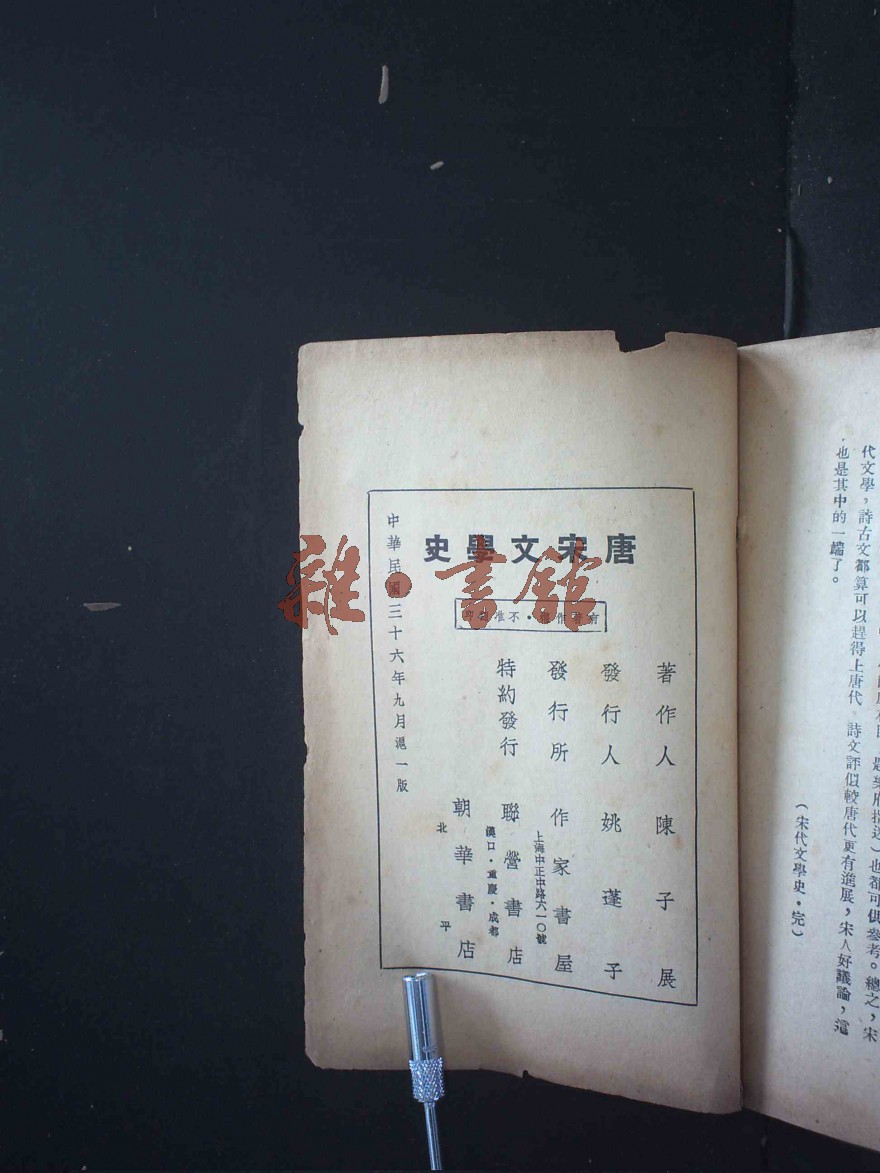 代文學，詩古文都算可以趕得上唐代。詩文評似較唐代更有進展，宋人好議論，這
也是其中的一端了。
（宋代文學史·完）
唐宋文學史
不准
著作人 陳子展
發行人 姚蓬子
發行所 作家書屋
上海中正中路六一〇號
特約發行 聯營書店
漢口·重慶·成都
朝華書店
北平
中華民國三十六年九月滬一版
雜·書館